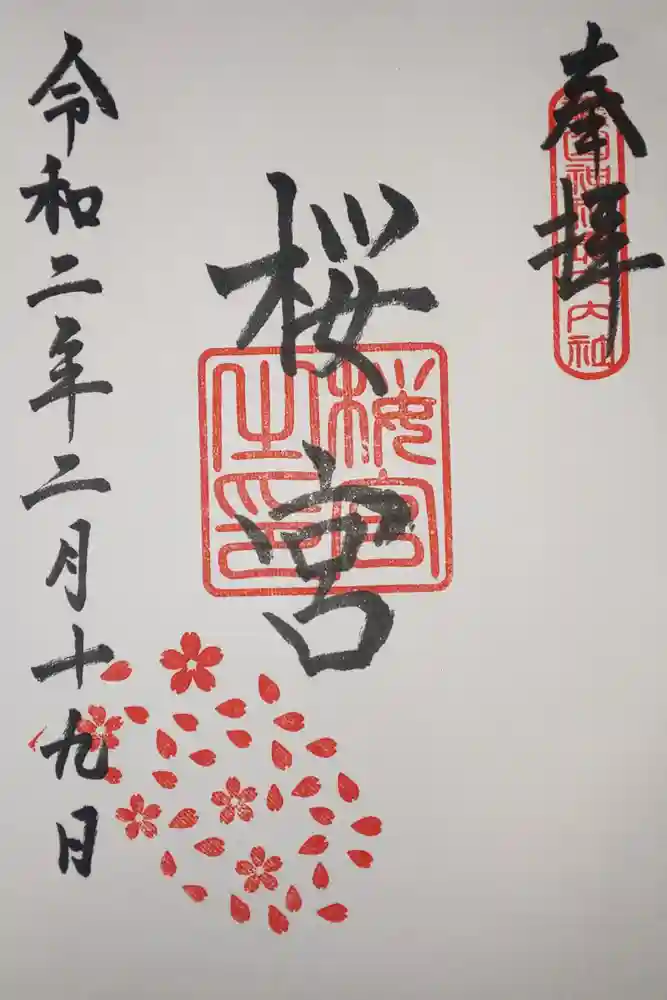 奉拝
桜宮
桜宮
之印
令和二年二月十九日